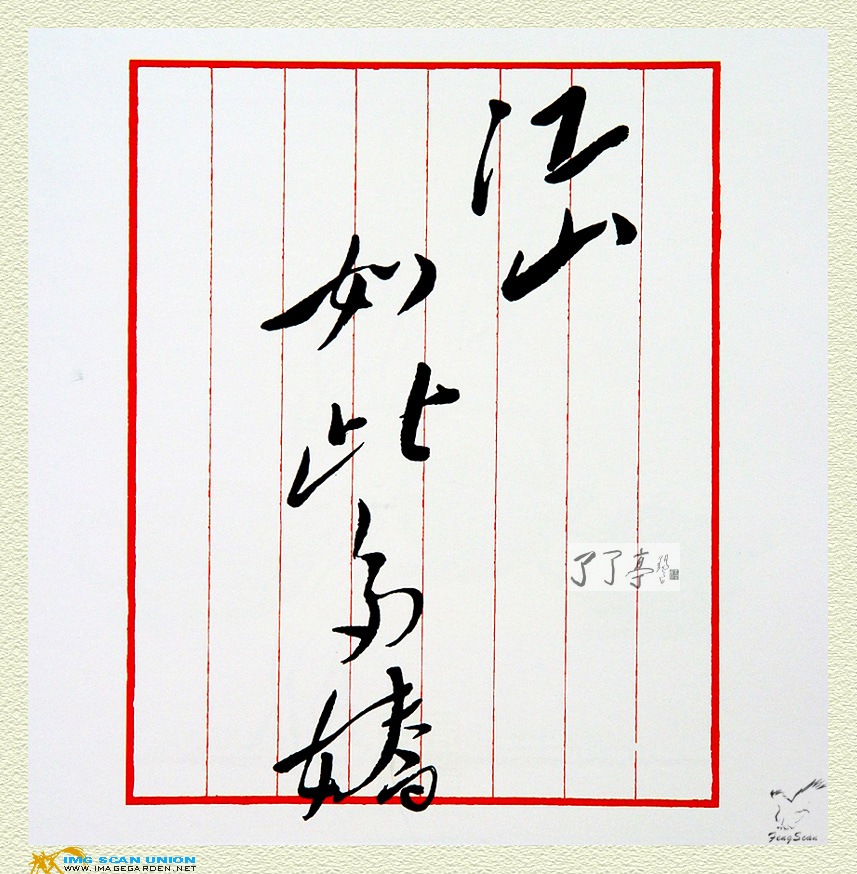 江山
如此多嬌
了了亭
FengScan
IMG SCAN UNION
WWW.IMAGEGARDEN.NET